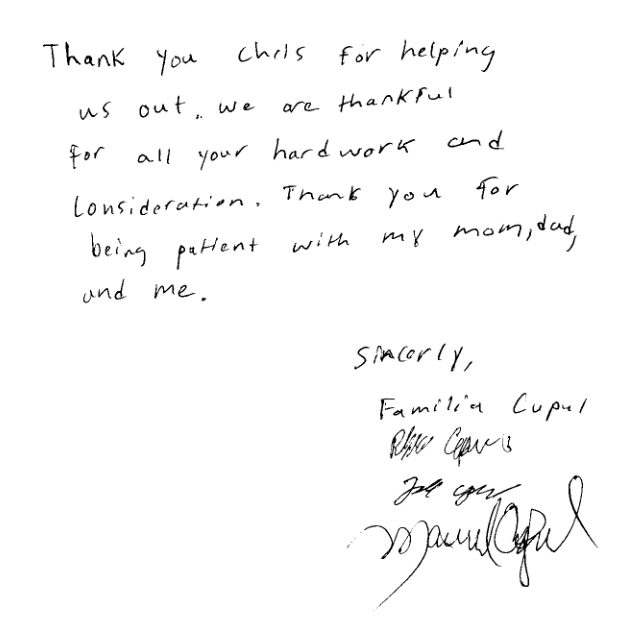 Thank you Chris for helping
us out. we are thankful
for all your hardwork and
consideration. Thank you for
being patient with my mom, dad,
and me.
Sincerly,
Familia Cupul
Manuel Cupul